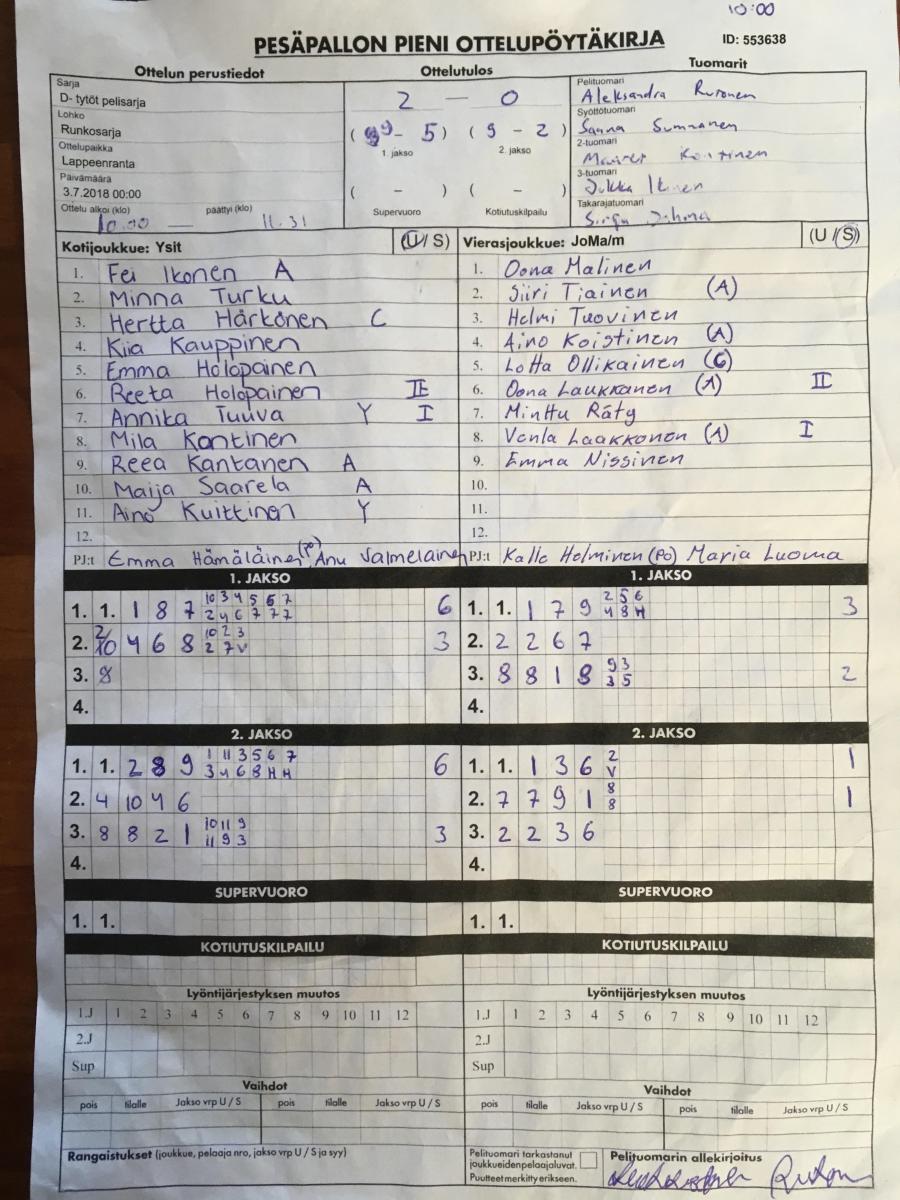 10:00
PESÄPALLON PIENI OTTELUPÖYTÄKIRJA ID: 553638
Ottelun perustiedot Ottelutulos Tuomarit
Sarja
D- tytöt pelisarja
Lohko
Runkosarja
Ottelupaikka
Lappeenranta
Päivämäärä
3.7.2018 00:00
Ottelu alkoi (klo) päättyi (klo)
10.00 — 11.31
2 — 0
( 9 - 5 ) ( 9 - 2 )
1. jakso 2. jakso
( - ) ( - )
Supervuoro Kotiutuskilpailu
Pelituomari
Aleksandra
Syöttötuomari
Sanna
2-tuomari
3-tuomari
Jukka Ikonen
Takarajatuomari
Kotijoukkue: Ysit (U / S)
1. Fei Ikonen A
2. Minna Turku
3. Hertta Härkönen C
4. Kiia Kauppinen
5. Emma Holopainen
6. Reeta Holopainen II
7. Annika Tuuva Y I
8. Mila Kontinen
9. Reea Kantanen A
10. Maija Saarela A
11. Aino Kuittinen Y
12.
PJ:t Emma Hämäläinen (PO), Anu Valmelainen
Vierasjoukkue: JoMa/m (U / S)
1. Oona Malinen
2. Siiri Tiainen (A)
3. Helmi Tuovinen
4. Aino Koistinen (A)
5. Lotta Ollikainen (C)
6. Oona Laukkanen (A) II
7. Minttu Räty
8. Venla Laakkonen (A) I
9. Emma Nissinen
10.
11.
12.
PJ:t Kalle Helminen (PO) Maria Luoma
1. JAKSO
1. 1. 1 8 7 10 3 4 5 6 7 6
2 4 6 7 7 7
2. 2/10 4 6 8 10 2 3 3
2 7 V
3. 8
4.
1. JAKSO
1. 1. 1 7 9 2 5 6 3
4 8 H
2. 2 2 6 7
3. 8 8 1 8 9 3 2
3 5
4.
2. JAKSO
1. 1. 2 8 9 1 11 3 5 6 7 6
3 4 6 8 H H
2. 4 10 4 6
3. 8 8 2 1 10 11 9 3
11 9 3
4.
2. JAKSO
1. 1. 1 3 6 2 1
V
2. 7 7 9 1 8 1
8
3. 2 2 3 6
4.
SUPERVUORO SUPERVUORO
1. 1. 1. 1.
KOTIUTUSKILPAILU KOTIUTUSKILPAILU
Lyöntijärjestyksen muutos Lyöntijärjestyksen muutos
1.J 1 2 3 4 5 6 7 8 9 10 11 12 1.J 1 2 3 4 5 6 7 8 9 10 11 12
2.J 2.J
Sup Sup
Vaihdot Vaihdot
pois tilalle Jakso vrp U / S pois tilalle Jakso vrp U / S pois tilalle Jakso vrp U / S pois tilalle Jakso vrp U / S
Rangaistukset (joukkue, pelaaja nro, jakso vrp U / S ja syy)
Pelituomari tarkastanut
joukkueiden pelaajaluvat.
Puutteet merkitty erikseen.
Pelituomarin allekirjoitus